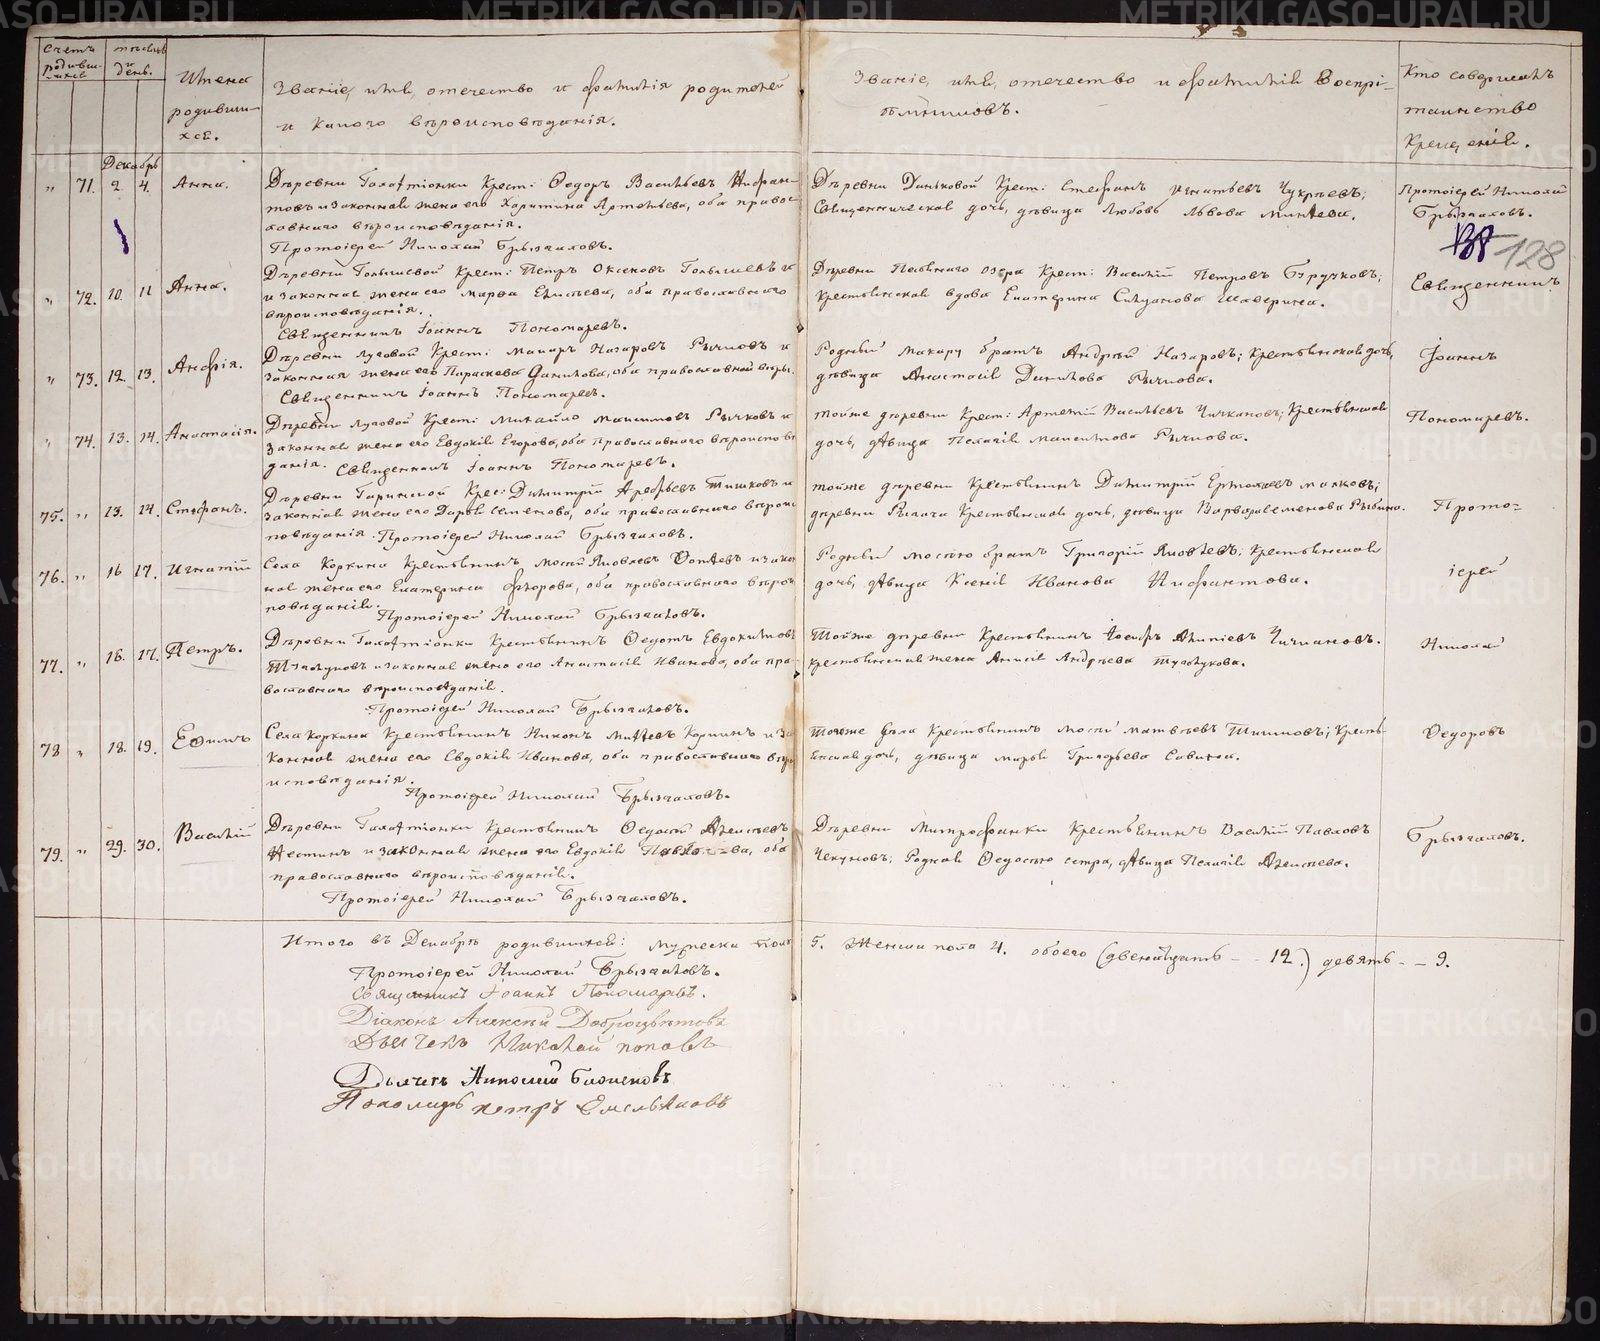 Счетъ родивши-хся
мѣсяцъ и день.
Имена родивши-хся.
Званіе, имя, отечество и фамилія родителей
и какого вѣроисповѣданія.
Званіе, имя, отечество и фамилія Воспрі-
емниковъ.
Кто совершалъ
таинство
крещенія.
Декабрь
" 71. 2. 4. Анна.
Деревни Галактіонки Крест: Ѳедоръ Васильевъ Нифан-
товъ и законная жена его Харитина Артемьева, оба право-
славнаго вѣроисповѣданія.
Протоіерей Николай Брызгаловъ.
Деревни Даньковой Крест: Стефанъ Игнатьевъ Чукреевъ;
Священническая дочь, дѣвица Любовь Львова
Протоіерей Николай
Брызгаловъ.
128
" 72. 10. 11 Анна.
Деревни Голышевой Крест: Петръ Голышевъ и
и законная жена его Марѳа Елисѣева, оба православнаго
вѣроисповѣданія.
Священникъ Іоаннъ Пономаревъ.
Деревни озера Крест: Василій Петровъ
крестьянская вдова Екатерина Силуанова Шаверина.
Священникъ
" 73. 12. 13. Анфія.
Деревни Луговой Крест: Макаръ Назаровъ Рычковъ и
законная жена его Параскева Данилова, оба православной вѣры.
Священникъ Іоаннъ Пономаревъ.
Родный Макару братъ Андрей Назаровъ; крестьянская дочь,
дѣвица Анастасія Данилова Рычкова.
Іоаннъ
" 74. 13. 14. Анастасія.
Деревни Луговой Крест: Михайло Рычковъ и
законная жена его Евдокія Егорова, оба православнаго вѣроисповѣ
данія. Священникъ Іоаннъ Пономаревъ.
тойже деревни Крест: Артемій Васильевъ Чичкановъ; Крестьянская
дочь, дѣвица Пелагія Рычкова.
Пономаревъ.
75. " 13. 14. Стефанъ.
Деревни Гаринской Крес: Димитрій Арефьевъ Тишковъ и
законная жена его Дарья Семенова, оба православнаго вѣроис
повѣданія. Протоіерей Николай Брызгаловъ.
тойже деревни Крестьянинъ Димитрій Ермолаевъ
деревни Рычкова Крестьянская дочь, дѣвица Варвара Семенова Рыбина.
Прото-
76. " 16 17. Игнатій
Села Коркина крестьянинъ Мосей Яковлевъ Ѳотѣевъ и закон
ная жена его Екатерина Ѳедорова, оба православнаго вѣроис
повѣданія.
Протоіерей Николай Брызгаловъ.
Родный Мосею братъ Григорій Яковлевъ; крестьянская
дочь, дѣвица Ксенія Иванова Нифантова.
іерей
77. " 16. 17. Петръ.
Деревни Галактіонки Крестьянинъ Ѳедотъ Евдокимовъ
и законная жена его Анастасія Иванова, оба пра-
вославнаго вѣроисповѣданія.
Протоіерей Николай Брызгаловъ.
Тойже деревни Крестьянинъ Іосифъ Чичкановъ.
крестьянская жена Анисія Андреева
Николай
78 " 18. 19. Ефимъ
Села Коркина Крестьянинъ Никонъ Коркинъ и за
конная жена его Евдокія Иванова, оба православнаго вѣро
исповѣданія.
Протоіерей Николай Брызгаловъ.
Тогоже села Крестьянинъ Мосей Матвѣевъ Тишковъ; Кресть-
янская дочь, дѣвица Марья Григорьева Савина.
Ѳедоровъ
79. " 29. 30. Василій
Деревни Галактіонки Крестьянинъ Ѳедосій Алексѣевъ
и законная жена его Евдокія Павлова, оба
православнаго вѣроисповѣданія.
Протоіерей Николай Брызгаловъ.
Деревни Митрофанки Крестьянинъ Василій Павловъ
Чекуновъ; Родная Ѳедосію сестра, дѣвица Пелагія Алексѣева.
Брызгаловъ.
Итого въ Декабрѣ родившихся: мужеска пола 5. Женска пола 4. обоего (двенатцать - - 12.) девять - - 9.
Протоіерей Николай Брызгаловъ.
Священникъ Іоаннъ Пономаревъ.
Діаконъ Алексѣй Доброцвѣтовъ
Дьячекъ Николай Поповъ
Дьячекъ Николай
Пономарь Петръ Емельяновъ
METRIKI.GASO-URAL.RU